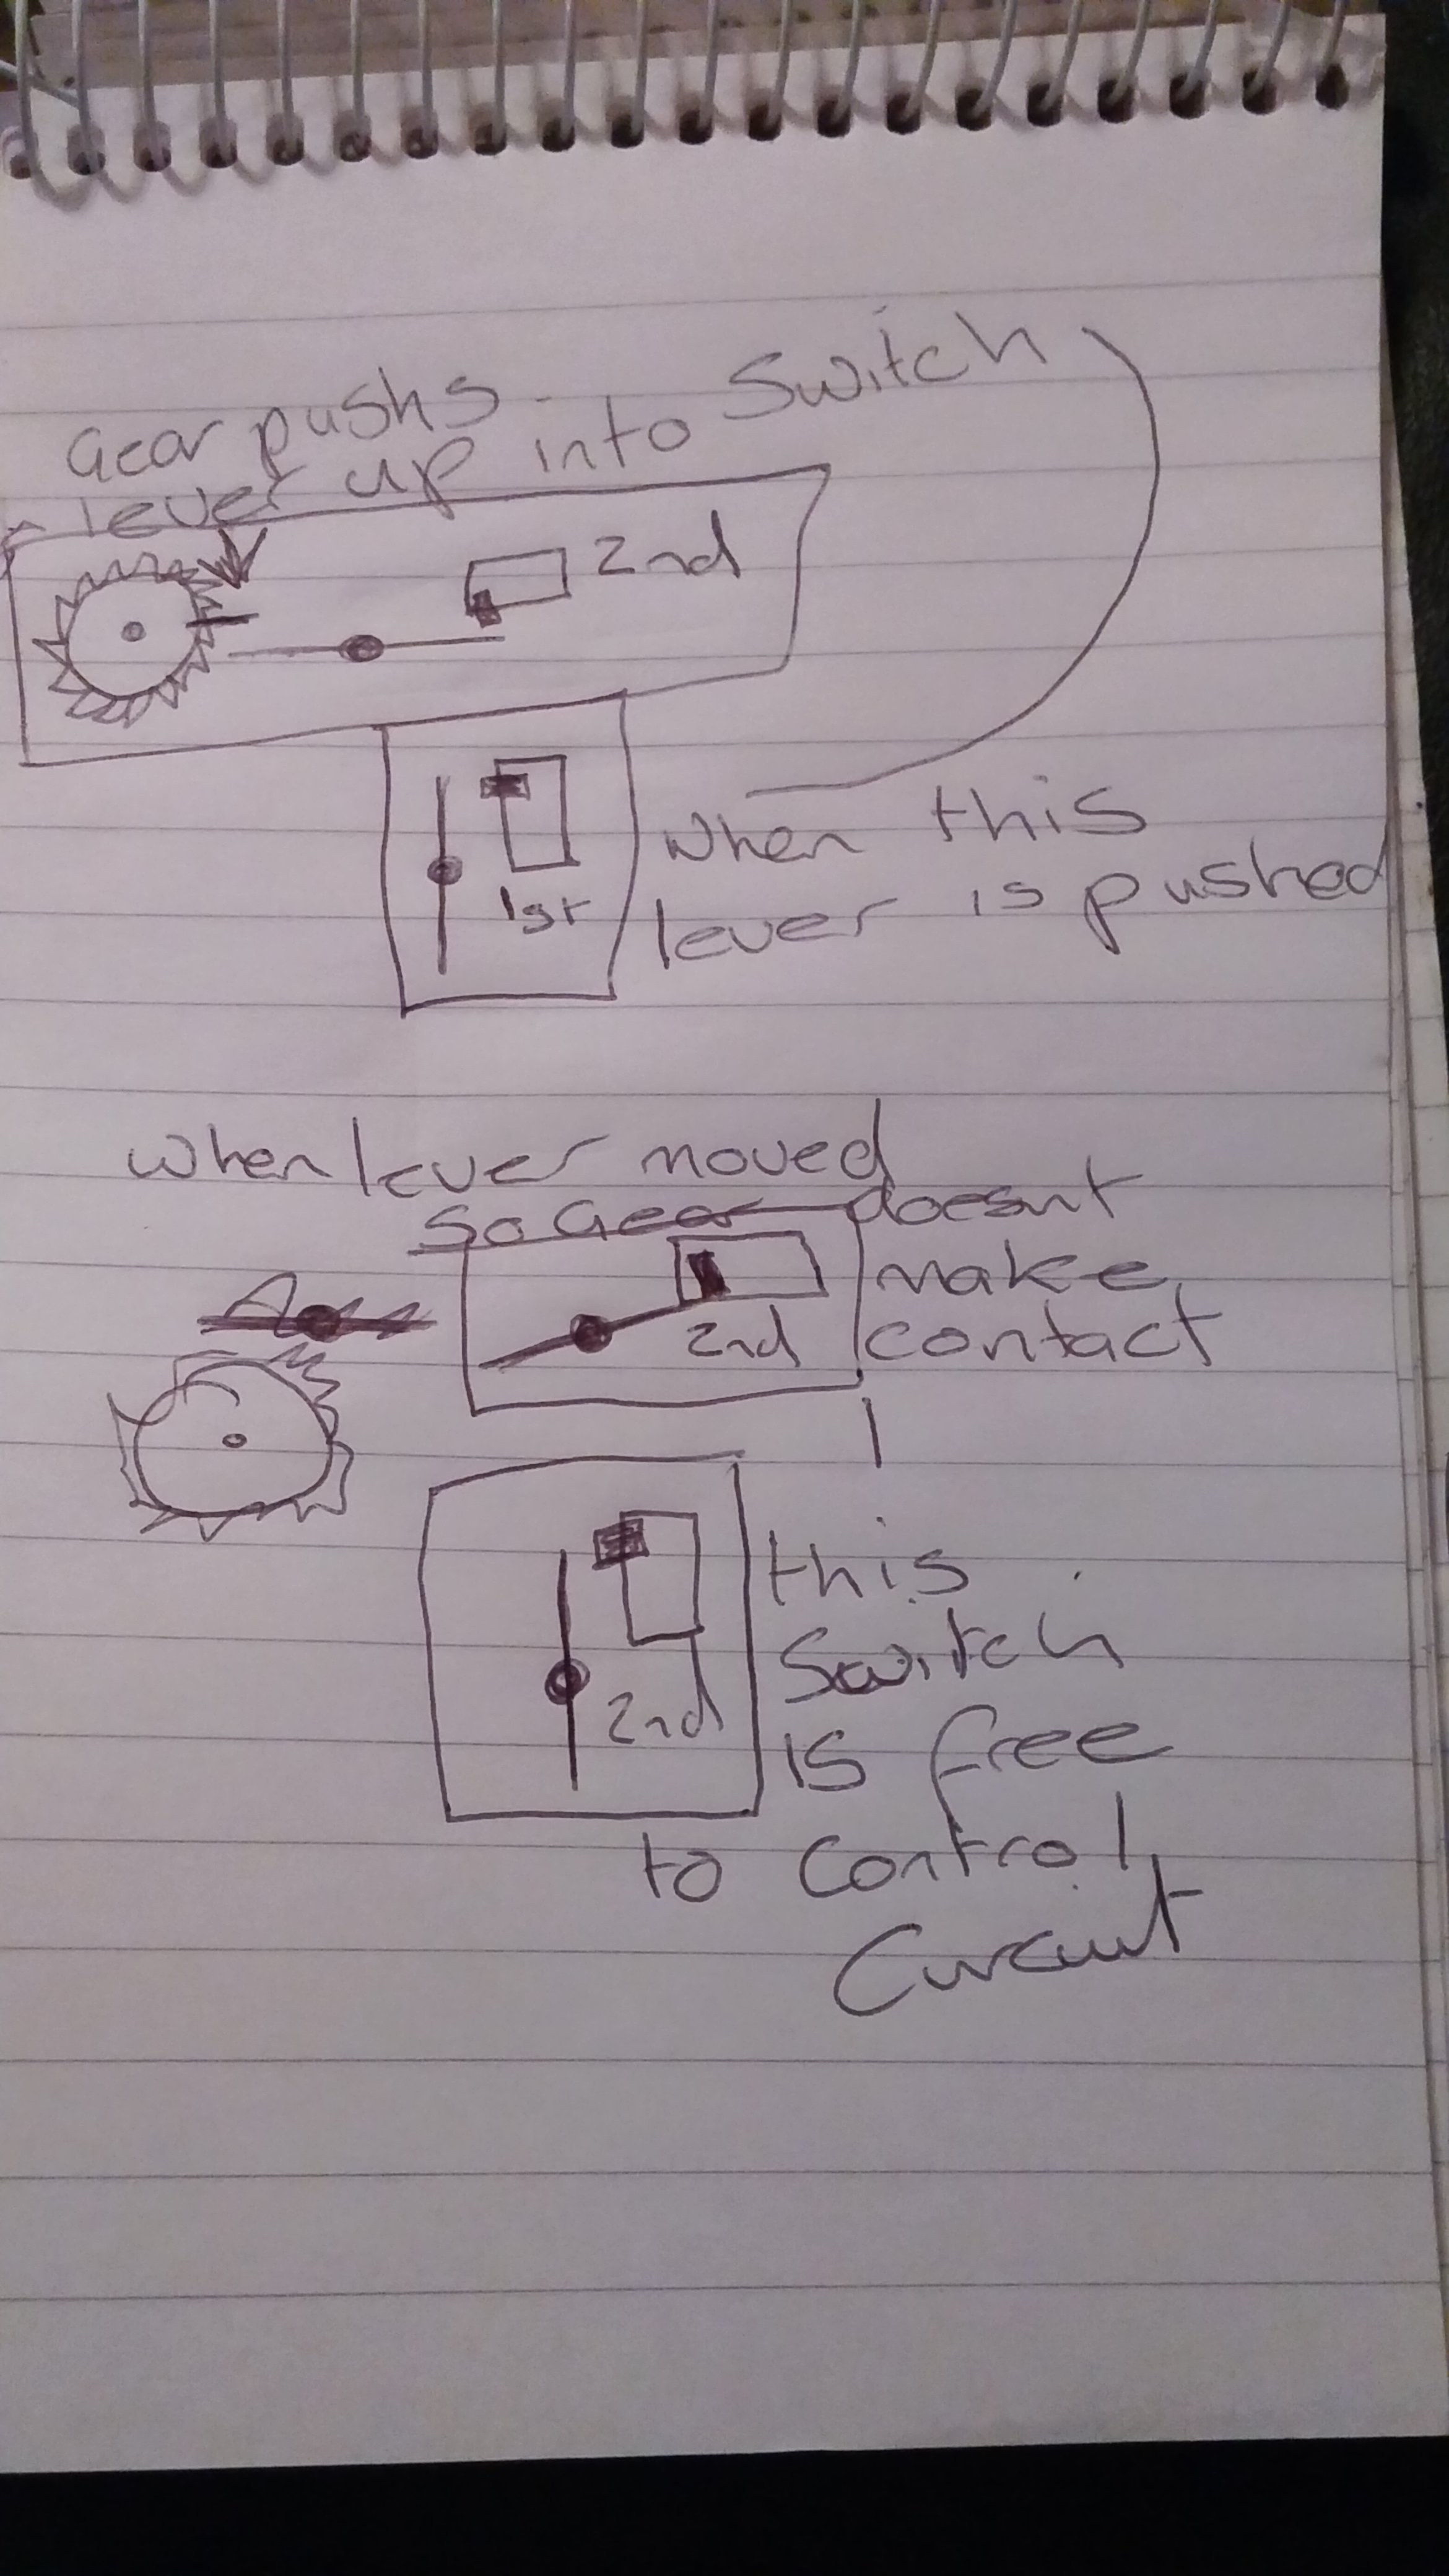 Gear pushs
lever up into Switch
2nd
1st
when this
lever is pushed
when lever moved
so Gear doesnt
make
contact
2nd
this
Switch
is free
2nd
to control
Circuit